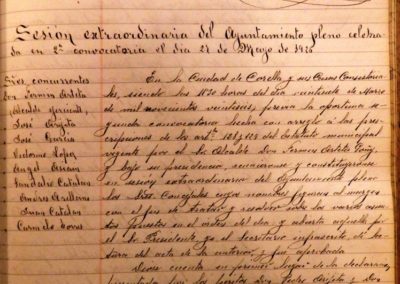 Sesión extraordinaria del Ayuntamiento pleno celebra-
da en 2ª convocatoria el día 27 de Mayo de 1926
Sres. concurrentes
Dn Fermin Arteta
Alcalde
José
José García
Victorino López
Angel
Andrés Arellano
Juan Catalán
Carmelo
En la Ciudad de Corella y sus Casas Consistoria-
les, siendo las 10'30 horas del día veintisiete de Marzo
de mil novecientos veintiseis, previa la oportuna se-
gunda convocatoria hecha con arreglo a las pres-
cripciones de los artos del Estatuto municipal
vigente por el Sr Alcalde Don Fermin Arteta
y bajo su presidencia reunieronse y constituyeronse
en sesión extraordinaria del Ayuntamiento pleno
los Sres Concejales cuyos nombres figuran al margen
con el fin de tratar y resolver sobre los varios asun-
tos puestos en el orden del día y abierta aquella por
el Sr Presidente, yo el Secretario infrascrito di lec-
tura del acta de la anterior, y fué aprobada
Diose cuenta en primer lugar de la
por los Don Pedro y Don